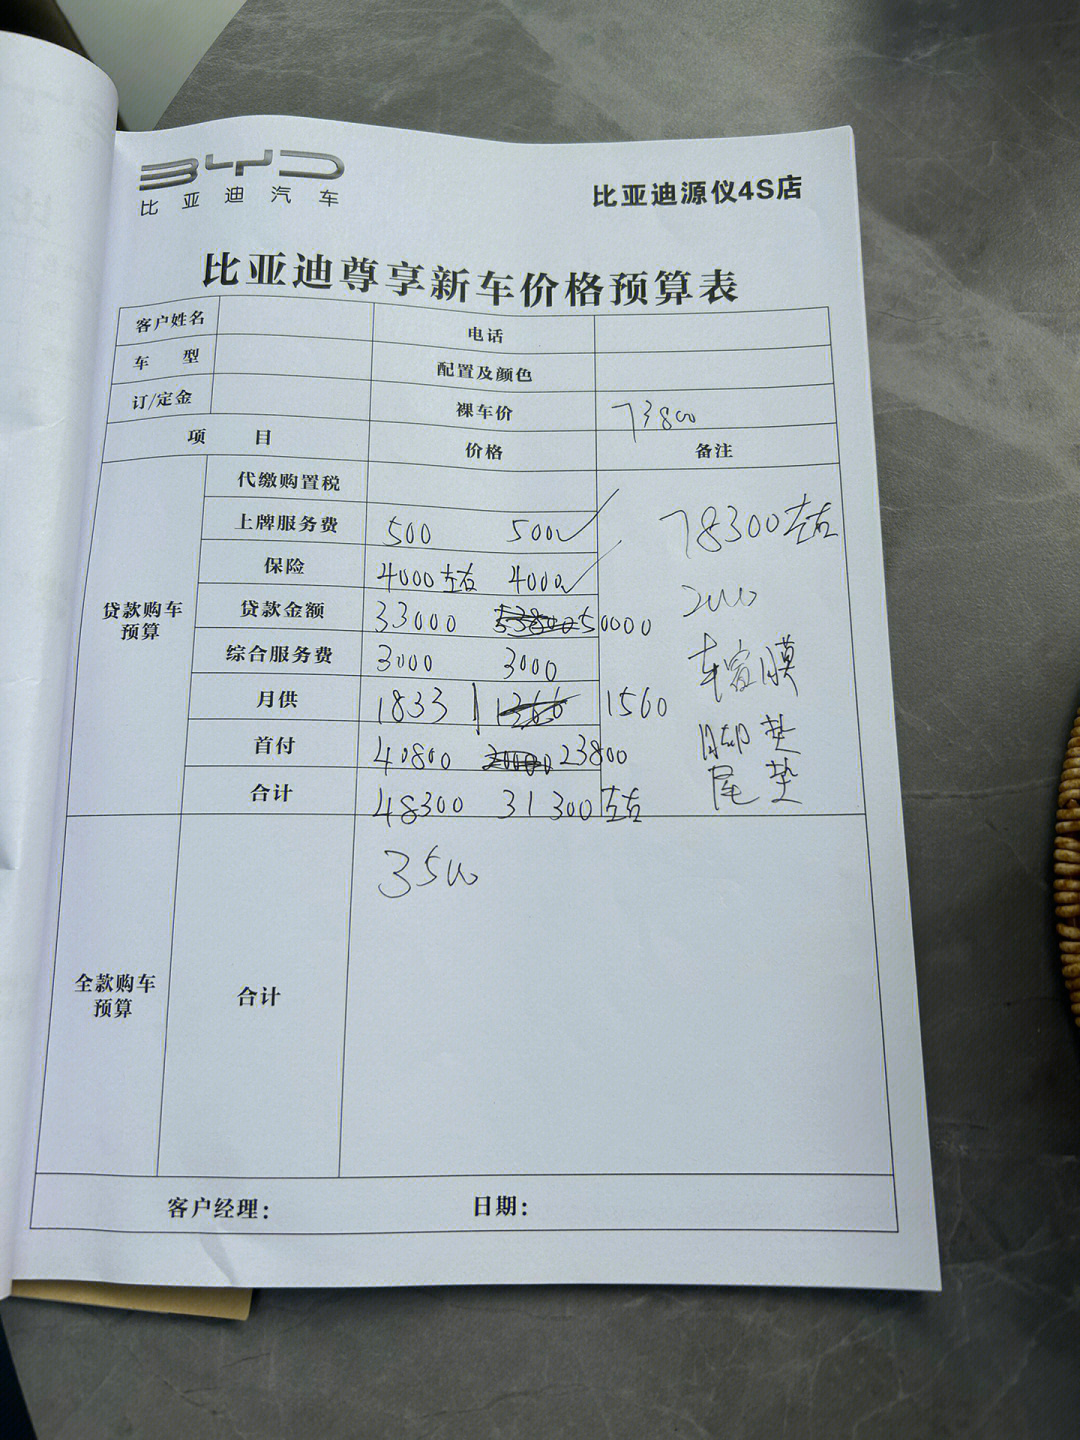 BYD
比亚迪汽车
比亚迪源仪4S店
比亚迪尊享新车价格预算表
客户姓名 电话
车 型 配置及颜色
订/定金 裸车价 73800
项 目 价格 备注
贷款购车预算
代缴购置税
上牌服务费 500 500
保险 4000左右 4000
贷款金额 33000 53800 50000
综合服务费 3000 3000
月供 1833 1366 1560
首付 40800 20000 23800
合计 48300 31300左右
78300左右
2000
车窗膜
脚垫
尾垫
全款购车预算
合计 3500
客户经理： 日期：